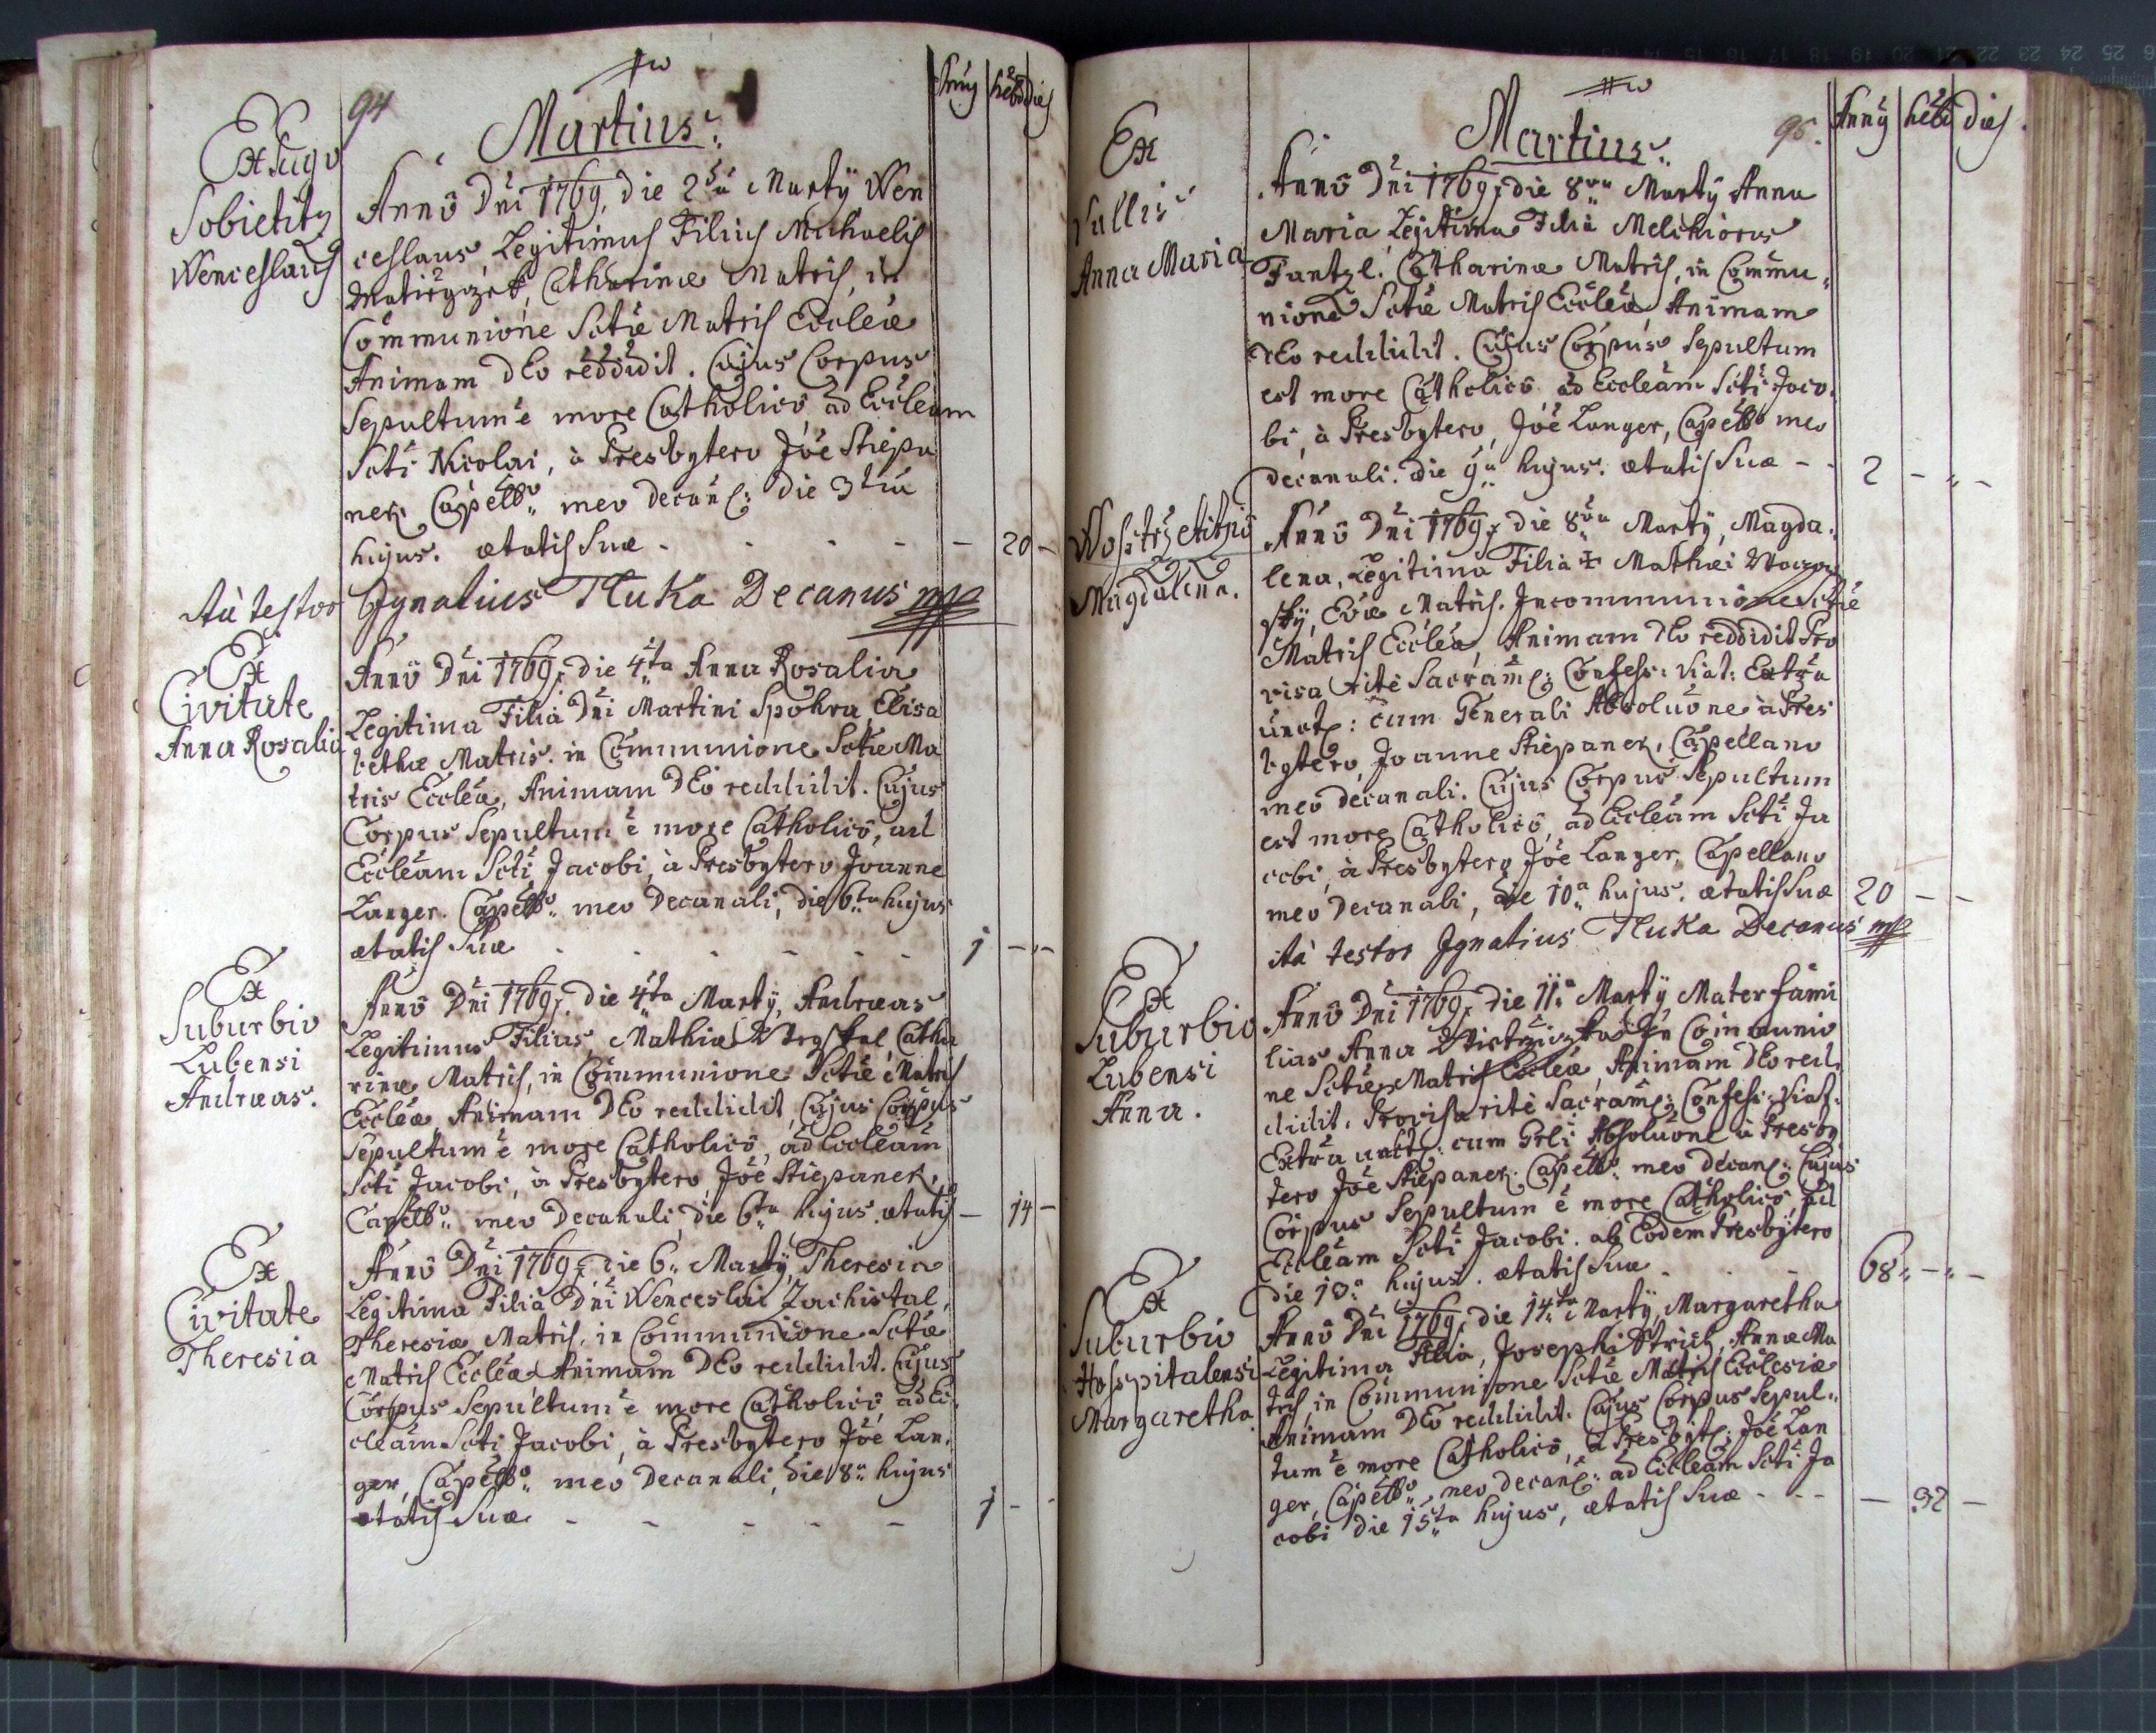 94
Martius.
Anny hebd dies
Ex Pago
Sobietitz
Wenceslaus
Anno Dni 1769, die 2da Martij Wen
ceslaus, Legitimus Filius Michaelis
Catharinæ Matris, in
Communione Sctæ Matris Eccleæ
Animam DEo reddidit. Cujus Corpus
Sepultum e more Catholico, ad Eccleam
Scti Nicolai, à Presbytero Joe Stiepa
nek Capello meo Decanl: die 3tia
hujus. ætatis Suæ - - - - - 20 -
Ita testor Ignatius Tluka Decanus mp
Ex
Civitate
Anna Rosalia
Anno Dni 1769, die 4ta Anna Rosalia
Legitima Filia Dni Martini Spohra, Elisa
bethæ Matris. in Communione Sctæ Ma
tris Eccleæ, Animam DEo reddidit. Cujus
Corpus Sepultum e more Catholico, ad
Eccleam Scti Jacobi, à Presbytero Joanne
Langer. Capello meo Decanali, die 6ta hujus
ætatis Suæ - - - - - 1 - -
Ex
Suburbio
Lubensi
Andreas.
Anno Dni 1769, die 4ta Martij, Andreas
Legitimus Filius, Mathiæ Catha
rinæ Matris, in Communione Sctæ Matris
Eccleæ, Animam DEo reddidit, Cujus Corpus
Sepultum e more Catholico, ad Eccleam
Scti Jacobi, à Presbytero Joe Stiepanek,
Capello meo Decanali, die 6ta hujus. ætatis - 14 -
Ex
Civitate
Theresia
Anno Dni 1769, die 6. Martij, Theresia
Legitima Filia Dni Wenceslai Zachistal,
Theresiæ Matris, in Communione Sctæ
Matris Eccleæ Animam DEo reddidit. Cujus
Corpus Sepultum e more Catholico, ad Ec
cleam Scti Jacobi, à Presbytero Joe Lan
ger, Capello meo Decanali, die 8a hujus
ætatis Suæ - - - - - 1 - -
95.
Martius.
Anny hebd dies
Ex
Vallis
Anna Maria
Anno Dni 1769, die 8va Martij Anna
Maria Legitima Filia Melchioris
Fantzl. Catharinæ Matris, in Commu
nione Sctæ Matris Eccleæ, Animam
DEo reddidit. Cujus Corpus Sepultum
est more Catholico, ad Eccleam Scti Jaco
bi, à Presbytero, Joe Langer, Capello meo
decanali. die 9a hujus. ætatis Suæ - - 2 - -
Magdalena.
Anno Dni 1769, die 8va Martij, Magda
lena, Legitima Filia Mathæi
sky, Evæ Matris. In communione Sctæ
Matris Eccleæ, Animam DEo reddidit Pro
visa rite Sacraml: Confess: Viat: Extra
unct: cum Generali Absoluone à Pres
bytero, Joanne Stiepanek, Capellano
meo decanali. Cujus Corpus Sepultum
est more Catholico, ad Eccleam Scti Ja
cobi, à Presbytero Joe Langer, Capellano
meo Decanali, die 10a hujus. ætatis Suæ 20 - -
ita testor Ignatius Tluka Decanus mp
Ex
Suburbio
Lubensi
Anna.
Anno Dni 1769, die 11a Martij Mater fami
lias Anna In Communio
ne Sctæ Matris Eccleæ, Animam DEo red
didit. Provisa rite Sacraml: Confess: Viat:
Extra unct: cum Grli Absoluone à Presby
tero Joe Stiepanek. Capello meo Decanl: Cujus
Corpus Sepultum e more Catholico, ad
Eccleam Scti Jacobi. ab Eodem Presbytero
die 13a hujus. ætatis Suæ - - 68 - -
Ex
Suburbio
Hospitalensi
Margaretha
Anno Dni 1769, die 14ta Martij, Margaretha
Legitima Filia, Josephi Annæ Ma
tris, in Communione Sctæ Matris Ecclesiæ
Animam DEo reddidit. Cujus Corpus Sepul
tum e more Catholico, à Presbyt: Joe Lan
ger, Capello meo decanl: ad Eccleam Scti Ja
cobi die 15ta hujus, ætatis Suæ - - - 32 -